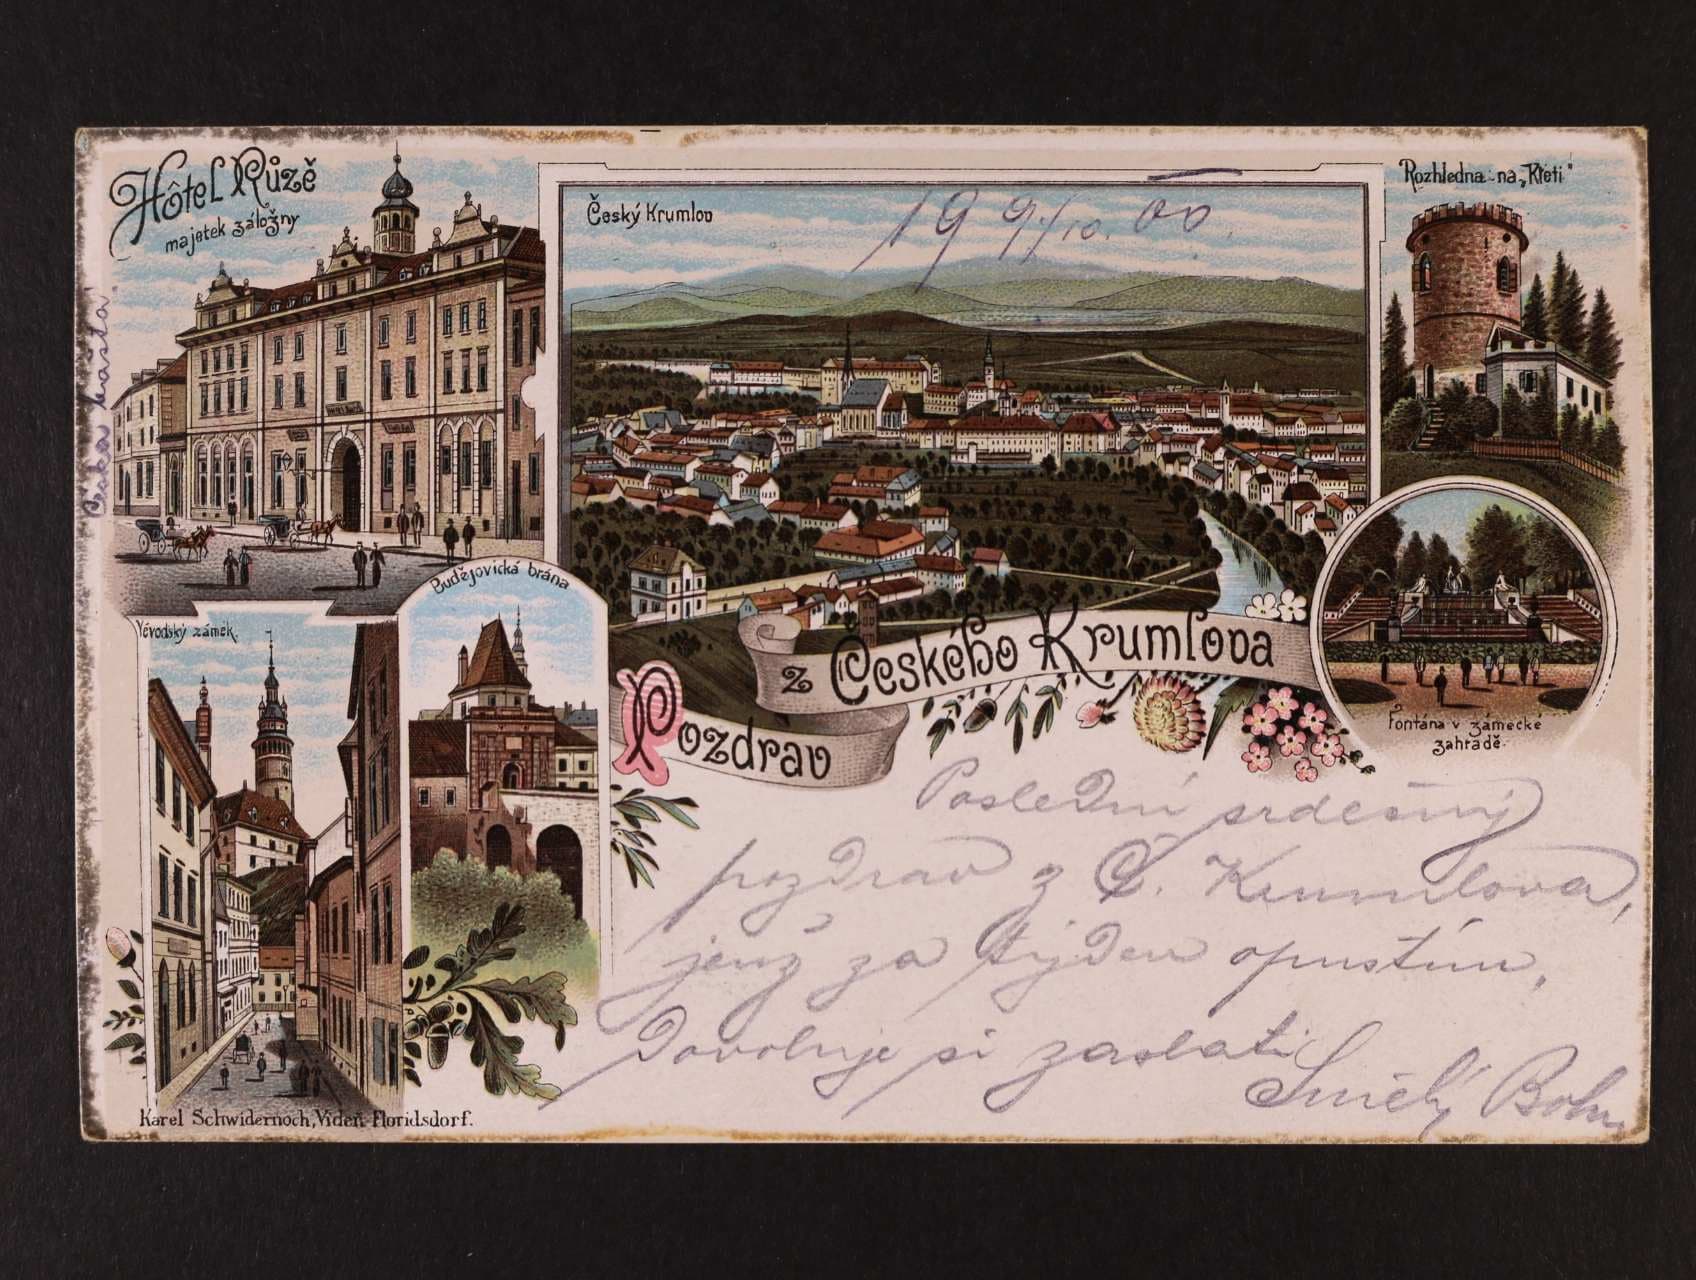 Hôtel Růzě
majetek záložny
Český Krumlov
19 9/10. 00.
Rozhledna na „Kleti"
Česka bašta
Budějovická brána
Vévodský zámek.
Pozdrav
z Českého Krumlova
Fontána v zámecké
zahradě.
Poslední srdečný
pozdrav z Č. Krumlova,
jenž za týden opustím,
Dovoluje si zaslati
Karel Schwidernoch, Vídeň-Floridsdorf.